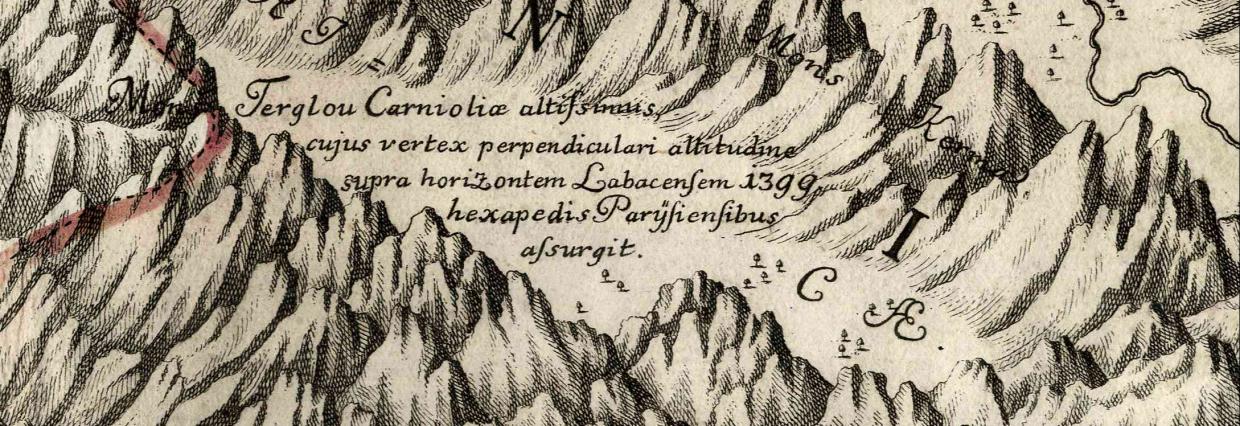 Mons Terglou Carnioliæ altiſsimus,
cujus vertex perpendiculari altitudine
supra horizontem Labacenſem 1399
hexapedis Parÿſienſibus
aſsurgit.
Mons
N
I
C
Æ